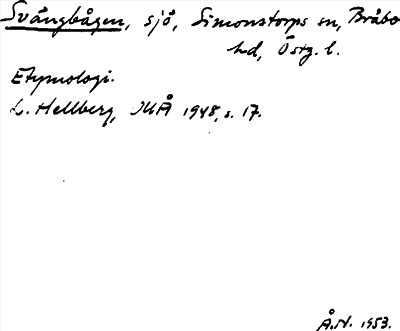 Svängbågen, sjö, Simonstorps sn, Bråbo
hd, Östg. l.
Etymologi.
L. Hellberg, NMÅ 1948, s. 17.
Å.N. 1953.